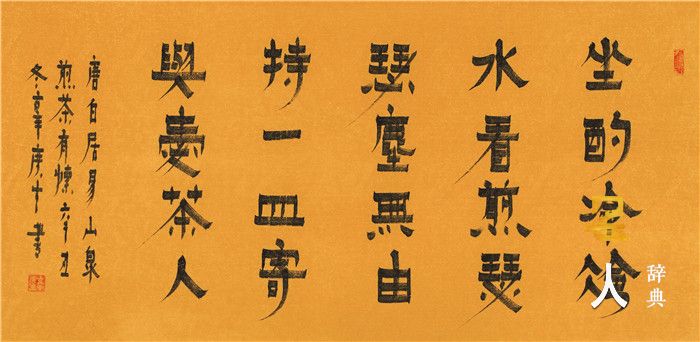 坐酌泠泠
水看煎瑟
瑟塵無由
持一皿寄
與愛茶人
唐白居易山泉
煎茶有懷辛丑
冬書
人辞典